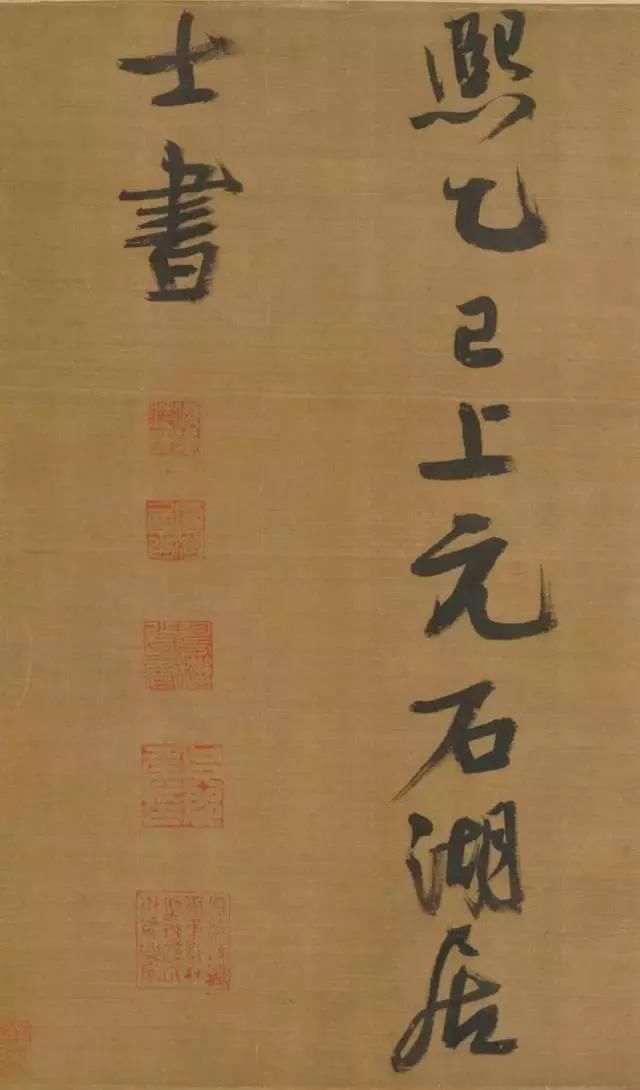 熙乙巳上元石湖居
士書